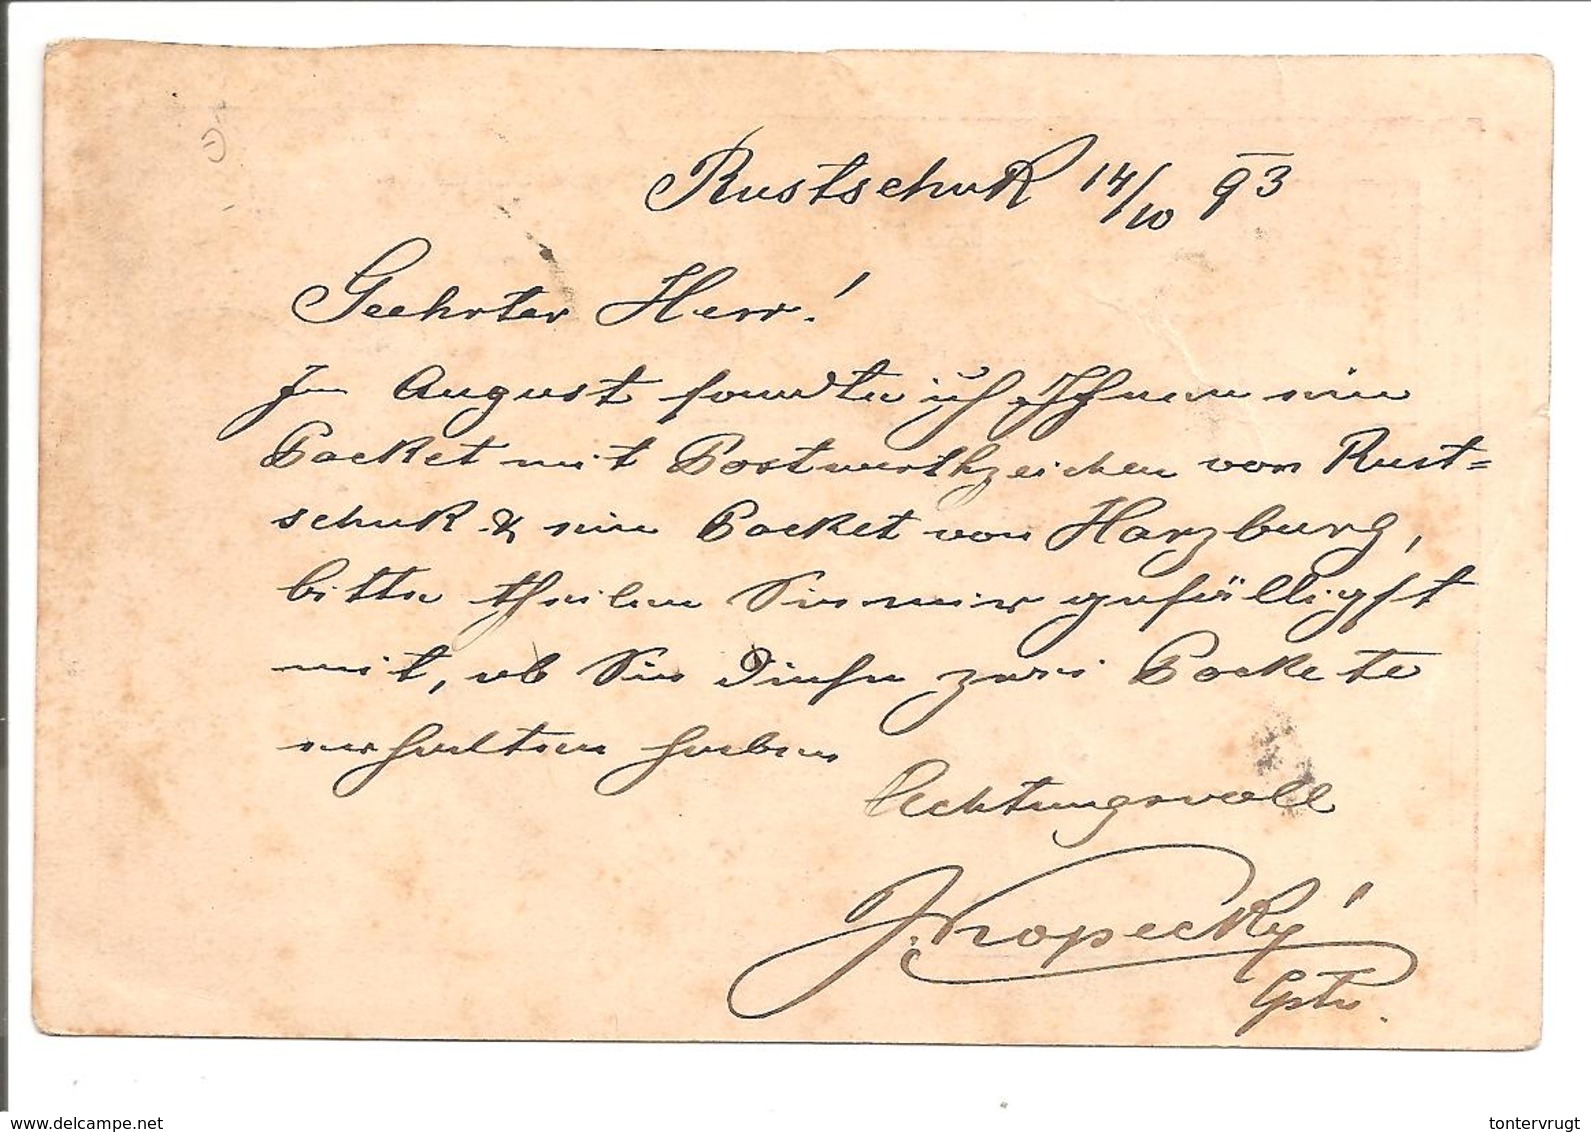 Rustschuk 14/10 93
Geehrter Herr!
Im August sandte ich Ihnen ein
Packet mit Postwerthzeichen von Rust=
schuk & ein Packet von Harzburg,
bitte theilen Sie mir gefälligst
mit, ob Sie diese zwei Packete
erhalten haben
Achtungsvoll
J. Kopecký
www.delcampe.net
tontervrugt